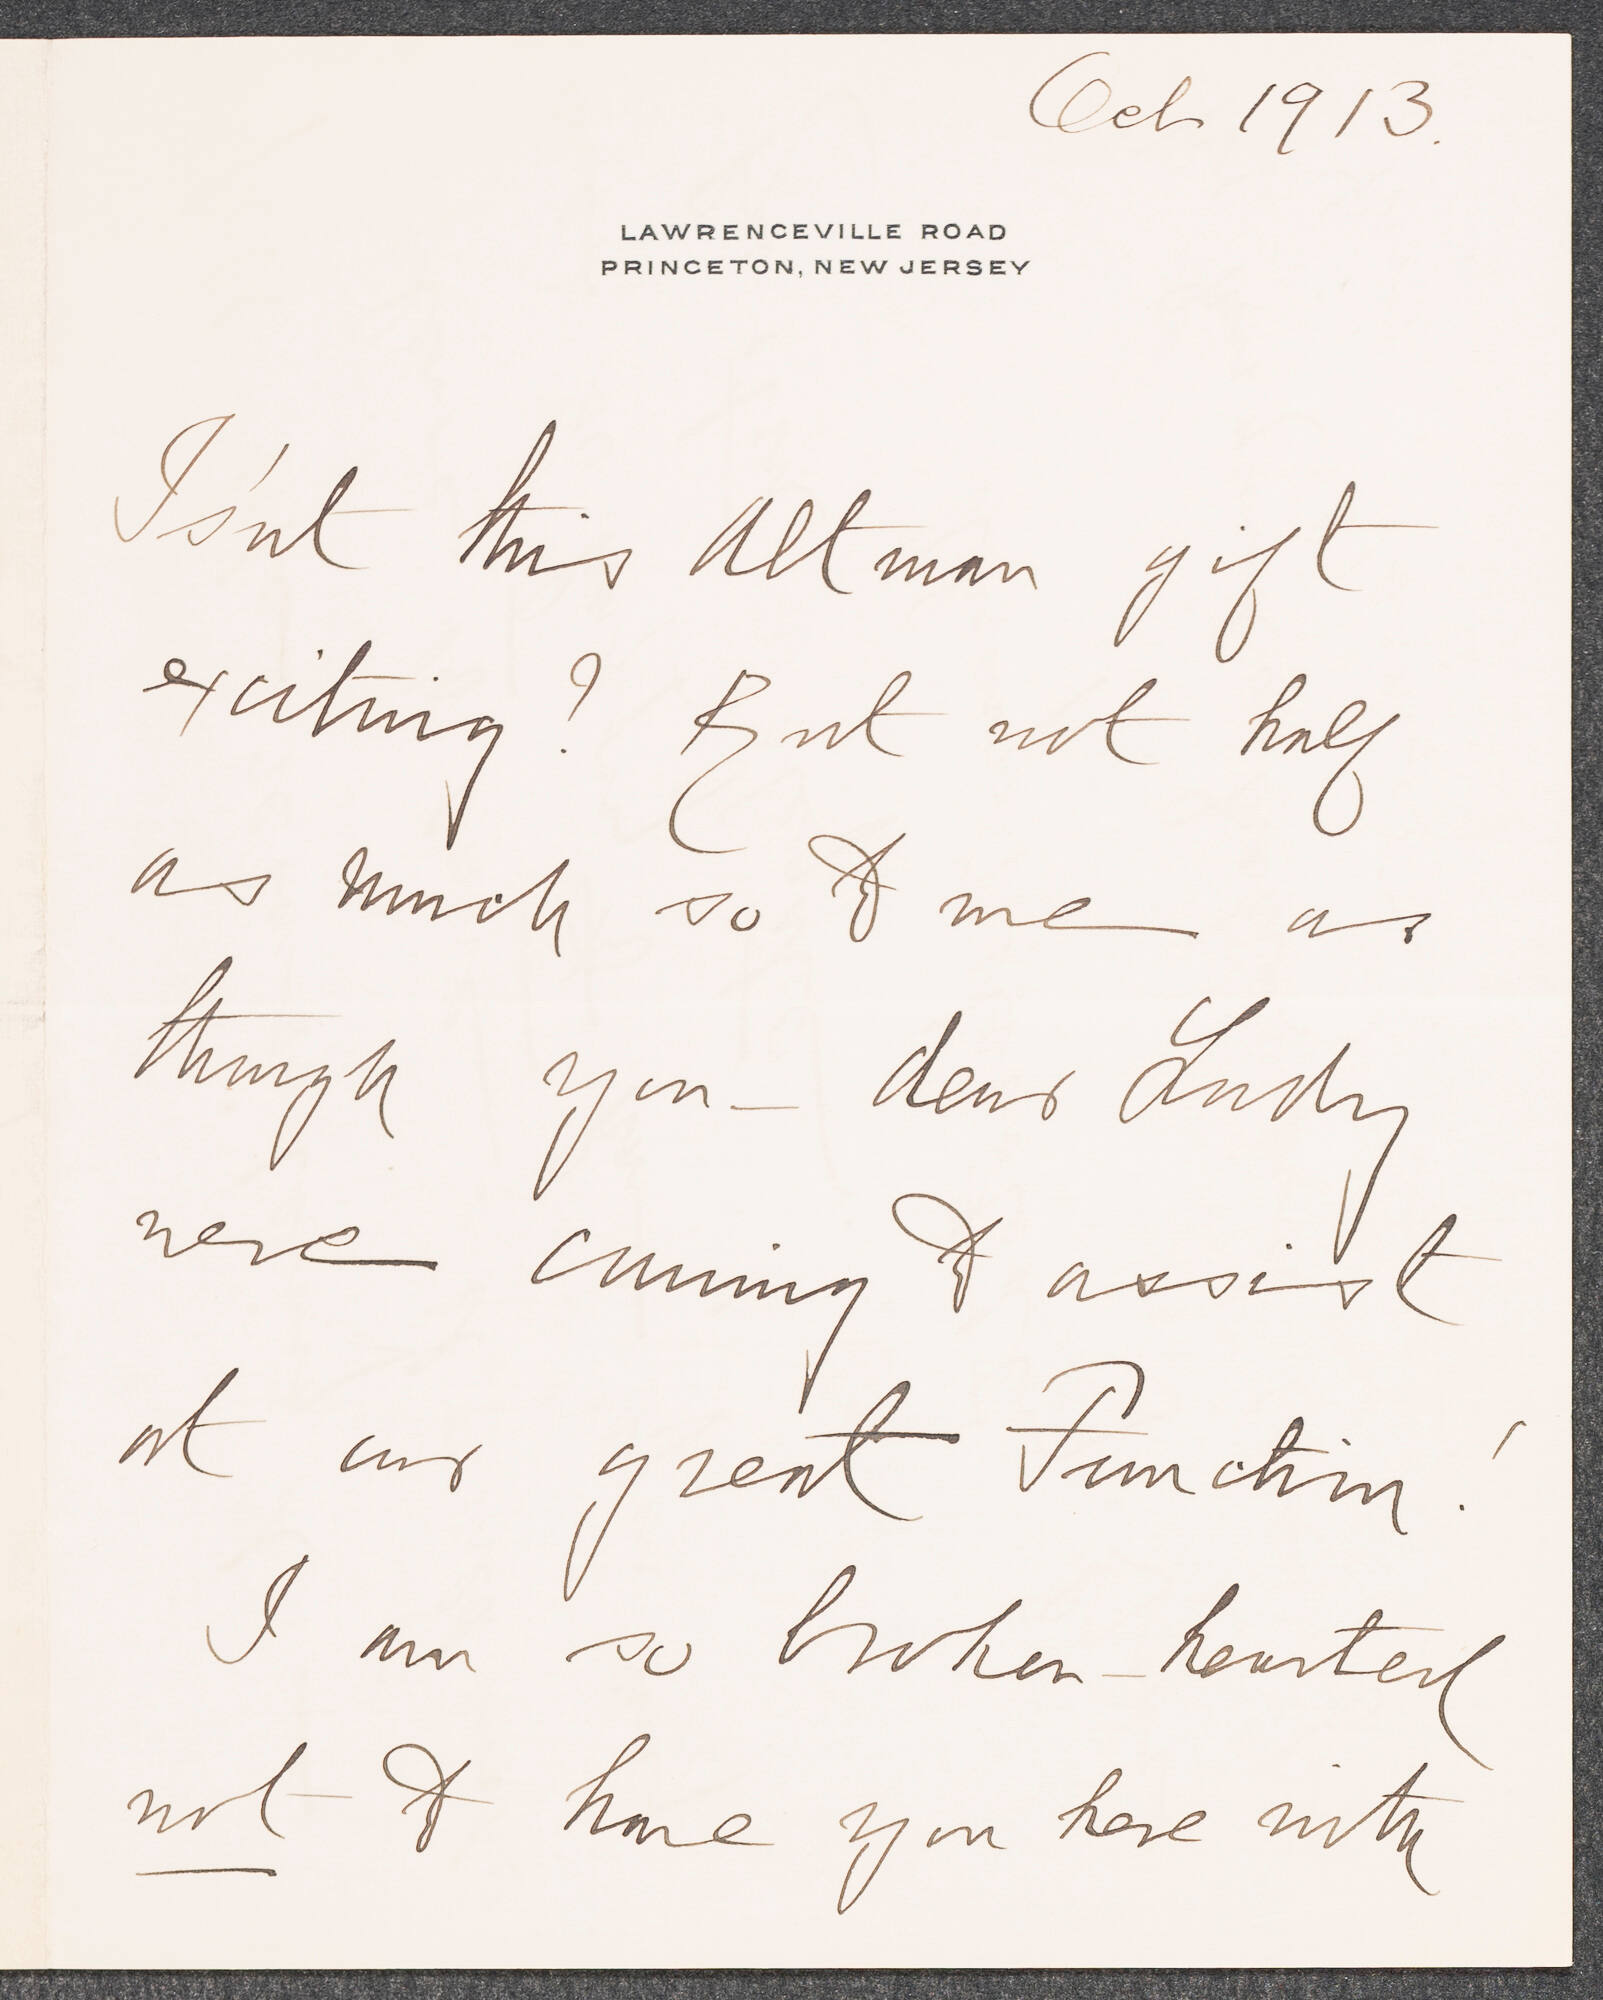 Oct 1913.
LAWRENCEVILLE ROAD
PRINCETON, NEW JERSEY
Is'nt this Altman gift
exciting? But not half
as much so to me as
though you — dear Lady
were coming to assist
at our great Function!
I am so broken-hearted
not to have you here with